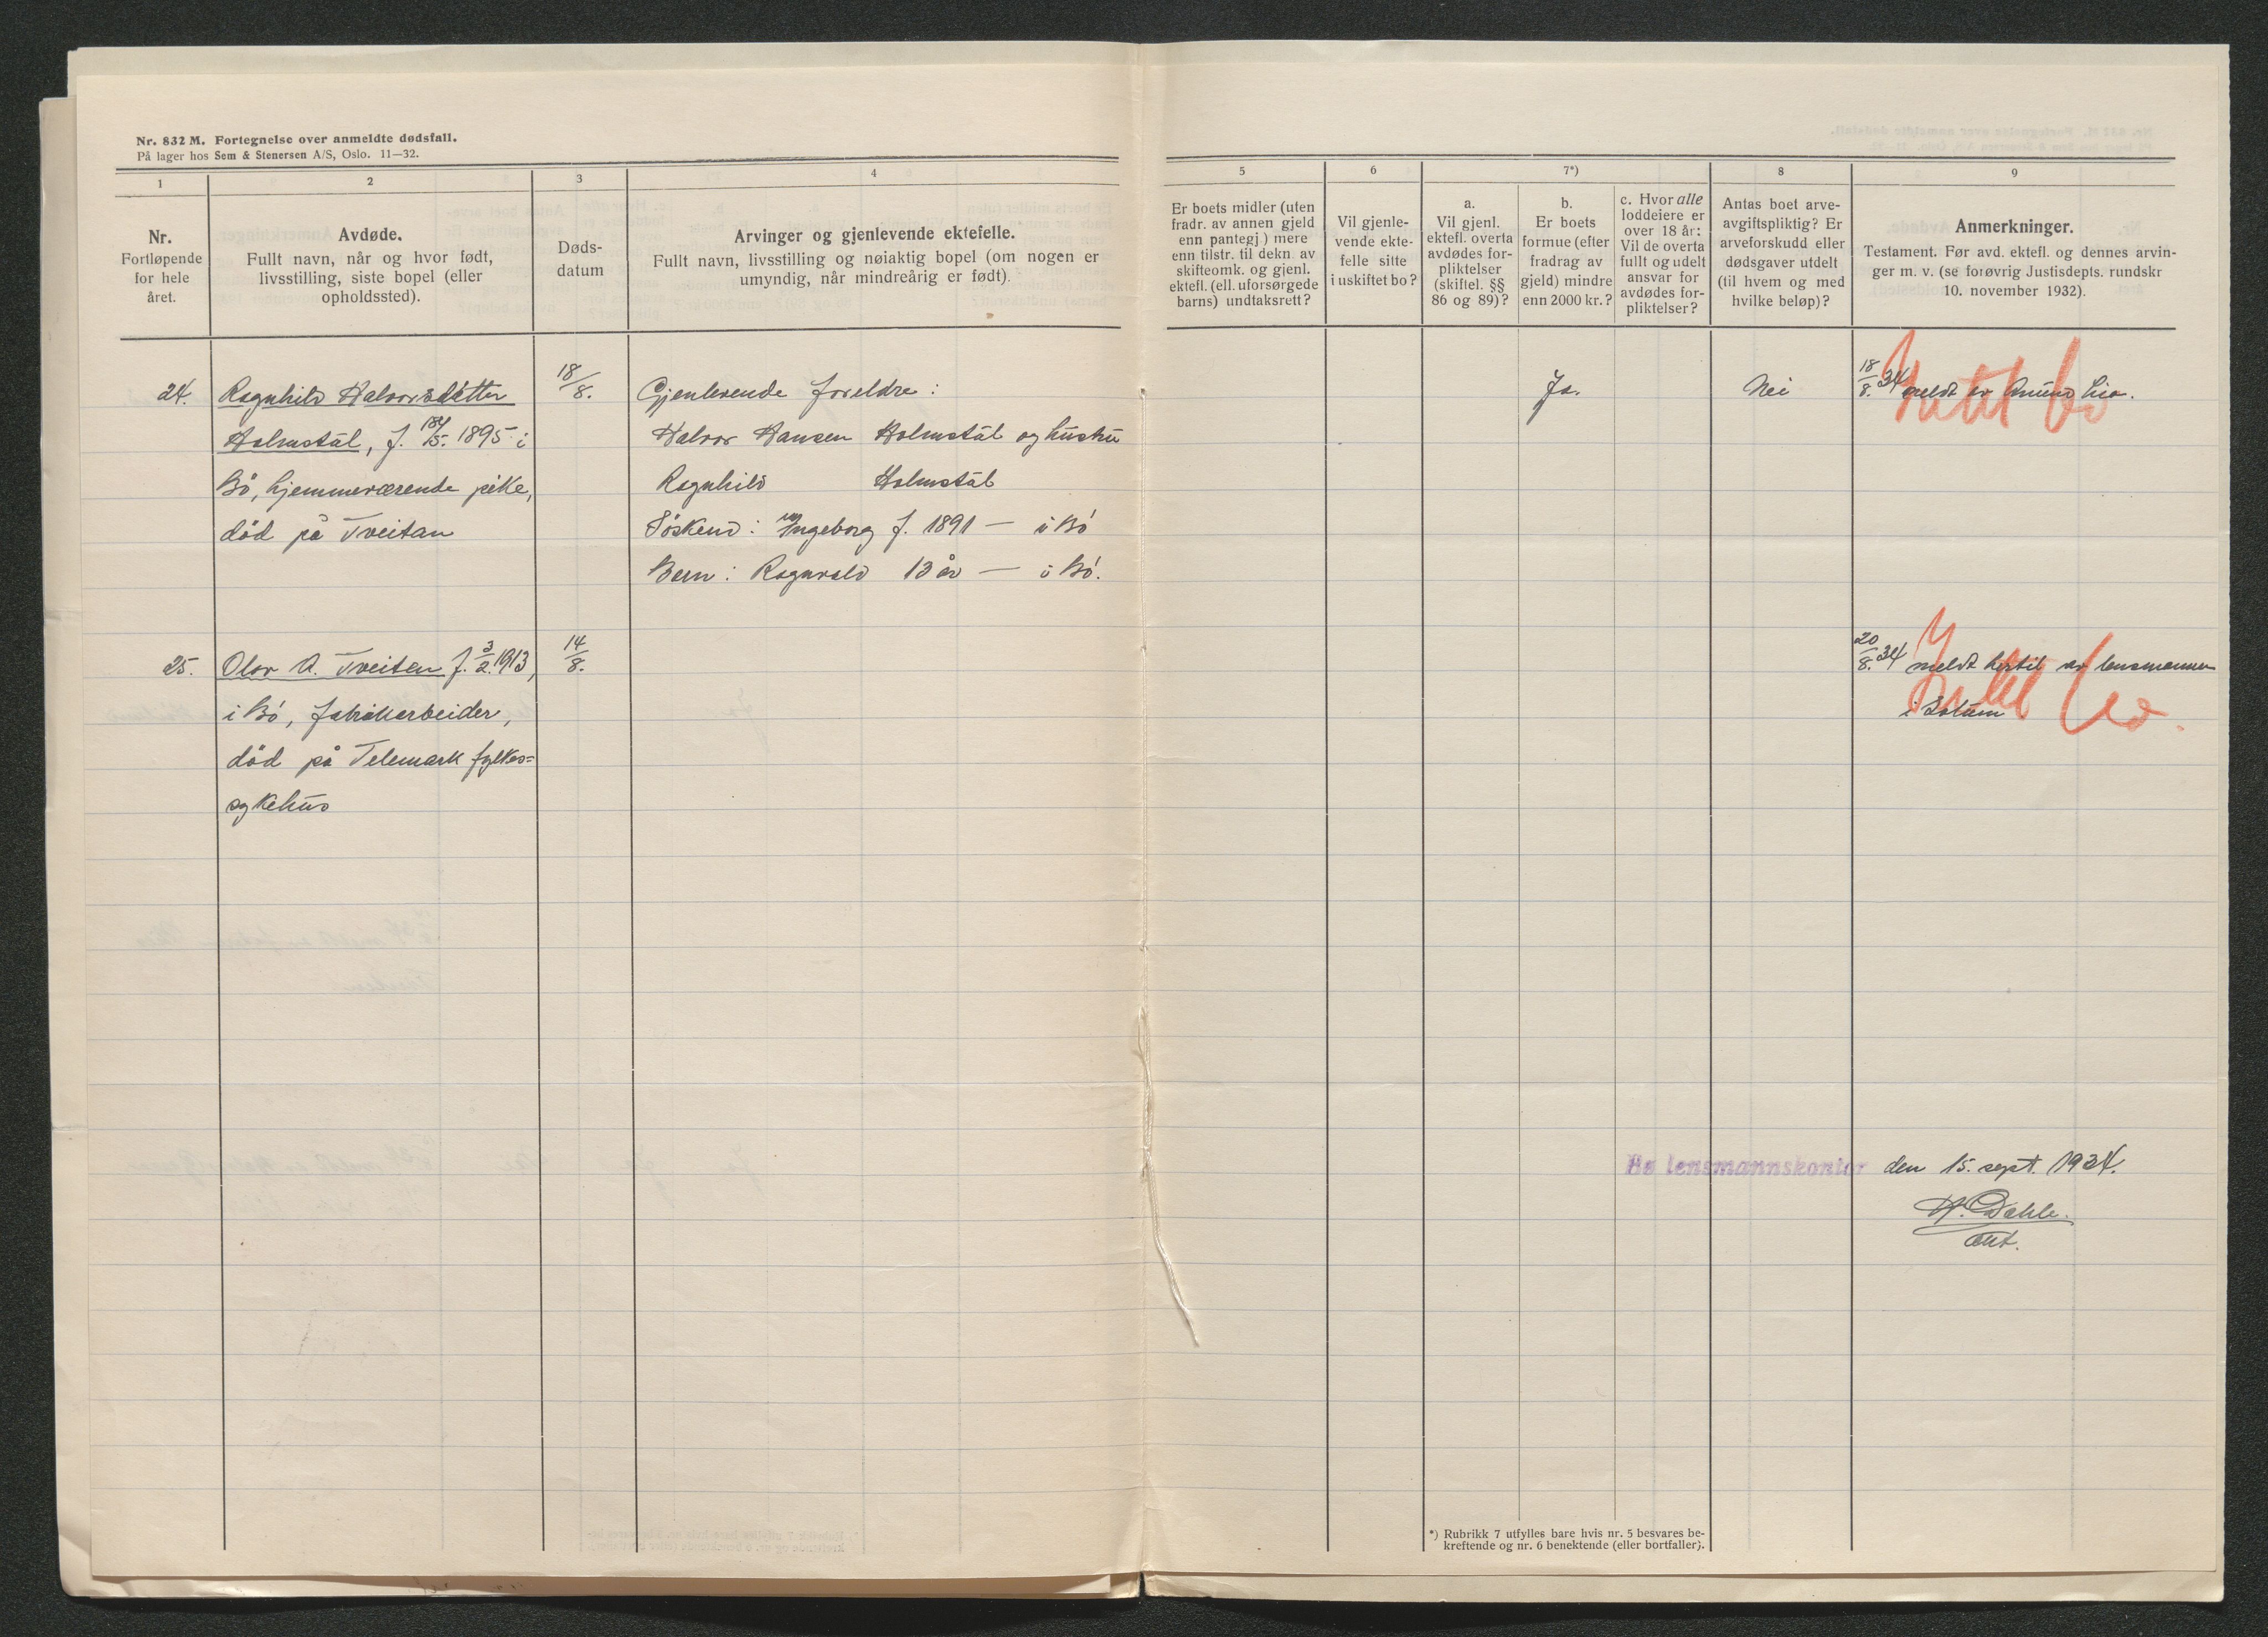 Nr. 832 M. Fortegnelse over anmeldte dødsfall.
På lager hos Sem & Stenersen A/S, Oslo. 11—32.
1
2
3
4
Nr.
Fortløpende
for hele
året.
Avdøde.
Fullt navn, når og hvor født,
livsstilling, siste bopel (eller
opholdssted).
Døds-
datum
Arvinger og gjenlevende ektefelle.
Fullt navn, livsstilling og nøiaktig bopel (om nogen er
umyndig, når mindreårig er født).
5
6
7*)
8
9
Er boets midler (uten
fradr. av annen gjeld
enn pantegj) mere
enn tilstr. til dekn. av
skifteomk. og gjenl.
ektefl. (ell. uforsørgede
barns) undtaksrett?
Vil gjenle-
vende ekte-
felle sitte
i uskiftet bo?
a.
Vil gjenl.
ektefl. overta
avdødes for-
pliktelser
(skiftel. §§
86 og 89)?
b.
Er boets
formue (efter
fradrag av
gjeld) mindre
enn 2000 kr.?
c. Hvor alle
loddeiere er
over 18 år:
Vil de overta
fullt og udelt
ansvar for
avdødes for-
pliktelser?
Antas boet arve-
avgiftspliktig? Er
arveforskudd eller
dødsgaver utdelt
(til hvem og med
hvilke beløp)?
Anmerkninger.
Testament. Før avd. ektefl. og dennes arvin-
ger m. v. (se forøvrig Justisdepts. rundskr
10. november 1932).
24.
Ragnhild Halvorsdatter
Holmstål, f. /5. 1895 i
Bö, hjemmeværende pike,
död på Tveitan
18/8.
Gjenlevende foreldre:
Halvor Hansen Holmstål og hustru
Ragnhild Holmstål
Söskend: Ingeborg f. 1891 — i Bö
Barn: Ragnvald 13 år — i Bö.
Ja.
Nei
18/8. 34 meldt av Amund Lia.
Intet bo
25.
Olav A. Tveitan f. 3/2 1913,
i Bö, fabrikkarbeider,
död på Telemark fylkes=
sykehus
14/8.
20/8. 34 meldt hertil av lensmannen
i Solum
Intet bo.
Bø lensmannskontor den 15. sept. 1934.
H. Dahle.
*) Rubrikk 7 utfylles bare hvis nr. 5 besvares be-
kreftende og nr. 6 benektende (eller bortfaller).